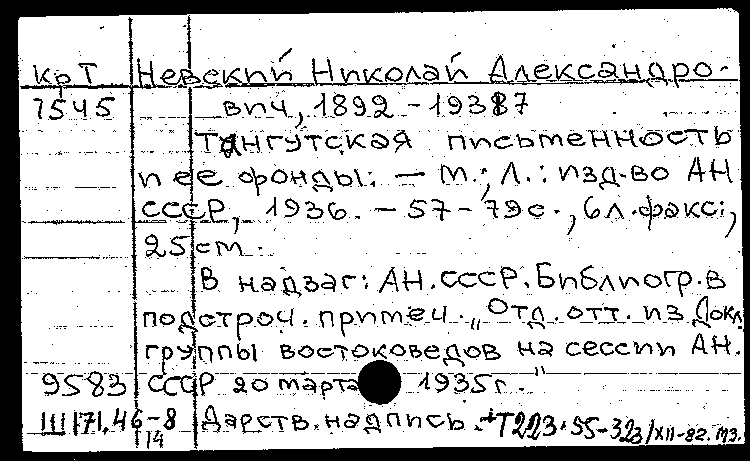 КрТ Невский Николай Александро-
7545 вич, 1892 - 1937
Тангутская письменность
и ее фонды: — М.; Л.: изд-во АН
СССР, 1936. — 57-79 с., 6 л. факс.;
25 cm.
В надзаг: АН. СССР. Библиогр. в
подстроч. примеч. „Отд. отт. из Докл.
группы востоковедов на сессии АН.
9583 СССР 20 марта 1935 г."
III 171.46-8 Дарств. надпись. +Т223.55-323/XII-82.
14